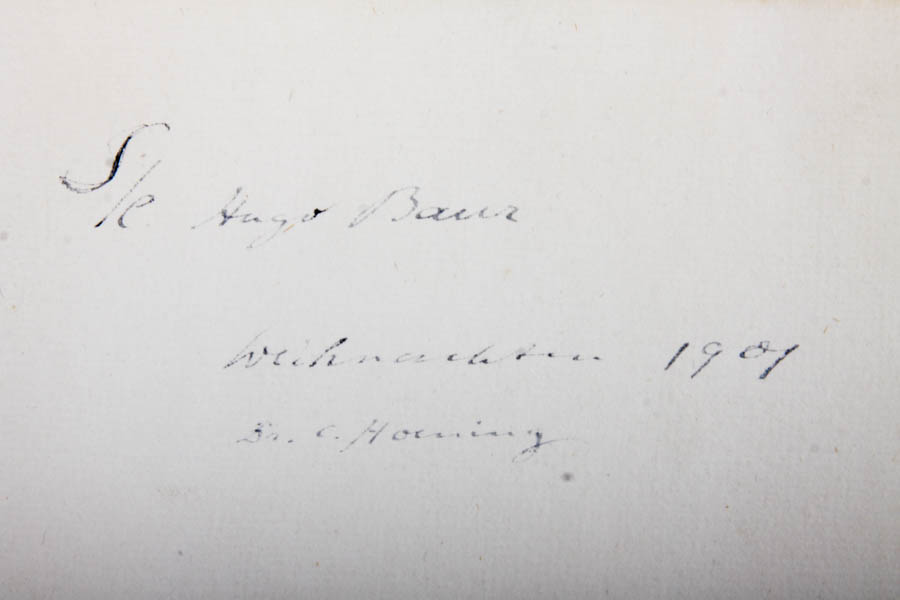 S/l. Hugo Baur
Weihnachten 1901
Dr. C. Hoening